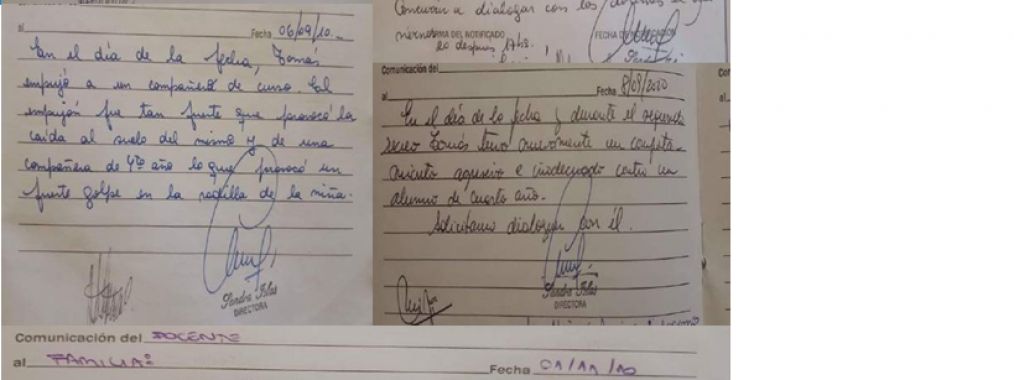 Fecha 06/09/10.-
al
En el día de la fecha, Tomás
empujó a un compañero de curso. El
empujón fue tan fuerte que provocó la
caída al suelo del mismo y de una
compañera de 4to año lo que provocó un
fuerte golpe en la rodilla de la niña.
Sandra Islas
DIRECTORA
Concurrir a dialogar con los
FIRMA DEL NOTIFICADO
FECHA DE NOTIFICACIÓN
despues 17hs.
Comunicación del
al
Fecha 8/09/2010
En el día de la fecha y durante el segundo
recreo Tomás tuvo nuevamente un comporta-
miento agresivo e inadecuado contra un
alumno de cuarto año.-
Solicitamos dialogar con él.
Sandra Islas
DIRECTORA
Com
al
Comunicación del DOCENTE
al FAMILIA:
Fecha 01/11/10